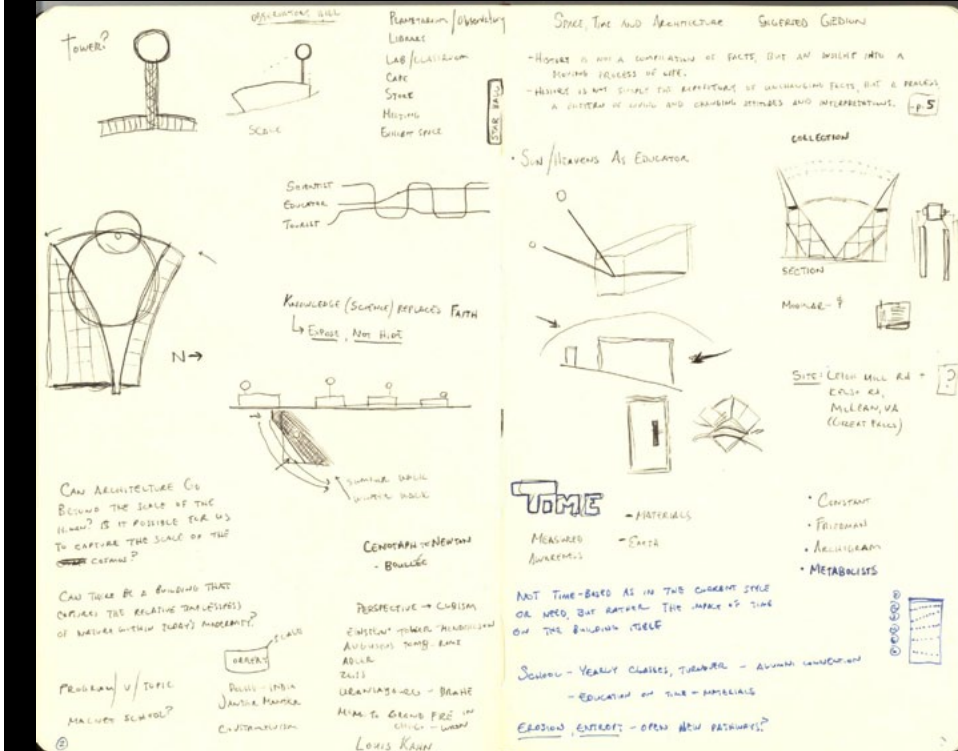 TOWER?
OBSERVATORY HILL
SCALE
PLANETARIUM/OBSERVATORY
LIBRARY
LAB/CLASSROOM
CAFE
STORE
MEETING
EXHIBIT SPACE
STAR HALL
SCIENTIST
EDUCATOR
TOURIST
KNOWLEDGE (SCIENCE) REPLACES FAITH
EXPOSE, NOT HIDE
N→
SUMMER WALK
WINTER WALK
CAN ARCHITECTURE GO
BEYOND THE SCALE OF THE
HUMAN? IS IT POSSIBLE FOR US
TO CAPTURE THE SCALE OF THE
CAN THERE BE A BUILDING THAT
CAPTURES THE RELATIVE TIMELESSNESS
OF NATURE WITHIN TODAY'S MODERNITY?
PROGRAM/ V/ TOPIC
MAGNET SCHOOL?
SCALE
OBJECT
DELHI - INDIA
JANTAR MANTAR
CONSTRUCTIVISM
CENOTAPH TO NEWTON
- BOULLÉE
PERSPECTIVE → CUBISM
EINSTEIN TOWER - MENDELSOHN
AUGUSTUS TOMB - ROME
ADLER
ZEISS
URANIABORG - BRAHE
LOUIS KAHN
2
SPACE, TIME AND ARCHITECTURE SIGFRIED GIEDION
- HISTORY IS NOT A COMPILATION OF FACTS, BUT AN INSIGHT INTO A
MOVING PROCESS OF LIFE.
- HISTORY IS NOT SIMPLY THE REPOSITORY OF UNCHANGING FACTS, BUT A PROCESS
A PATTERN OF LIVING AND CHANGING ATTITUDES AND INTERPRETATIONS. - p. 5
COLLECTION
• SUN/HEAVENS AS EDUCATOR
SECTION
MODULAR - ?
SITE: LEIGH MILL RD +
MCLEAN, VA
(GREAT FALLS)
?
TIME
MEASURED
AWARENESS
- MATERIALS
- EARTH
• CONSTANT
• FRIEDMAN
• ARCHIGRAM
• METABOLISTS
NOT TIME-BASED AS IN THE CURRENT STYLE
OR NEED, BUT RATHER THE IMPACT OF TIME
ON THE BUILDING ITSELF
SCHOOL - YEARLY CLASSES, TURNOVER - ALUMNI CONNECTION
- EDUCATION ON TIME - MATERIALS
EROSION, ENTROPY - OPEN NEW PATHWAYS?